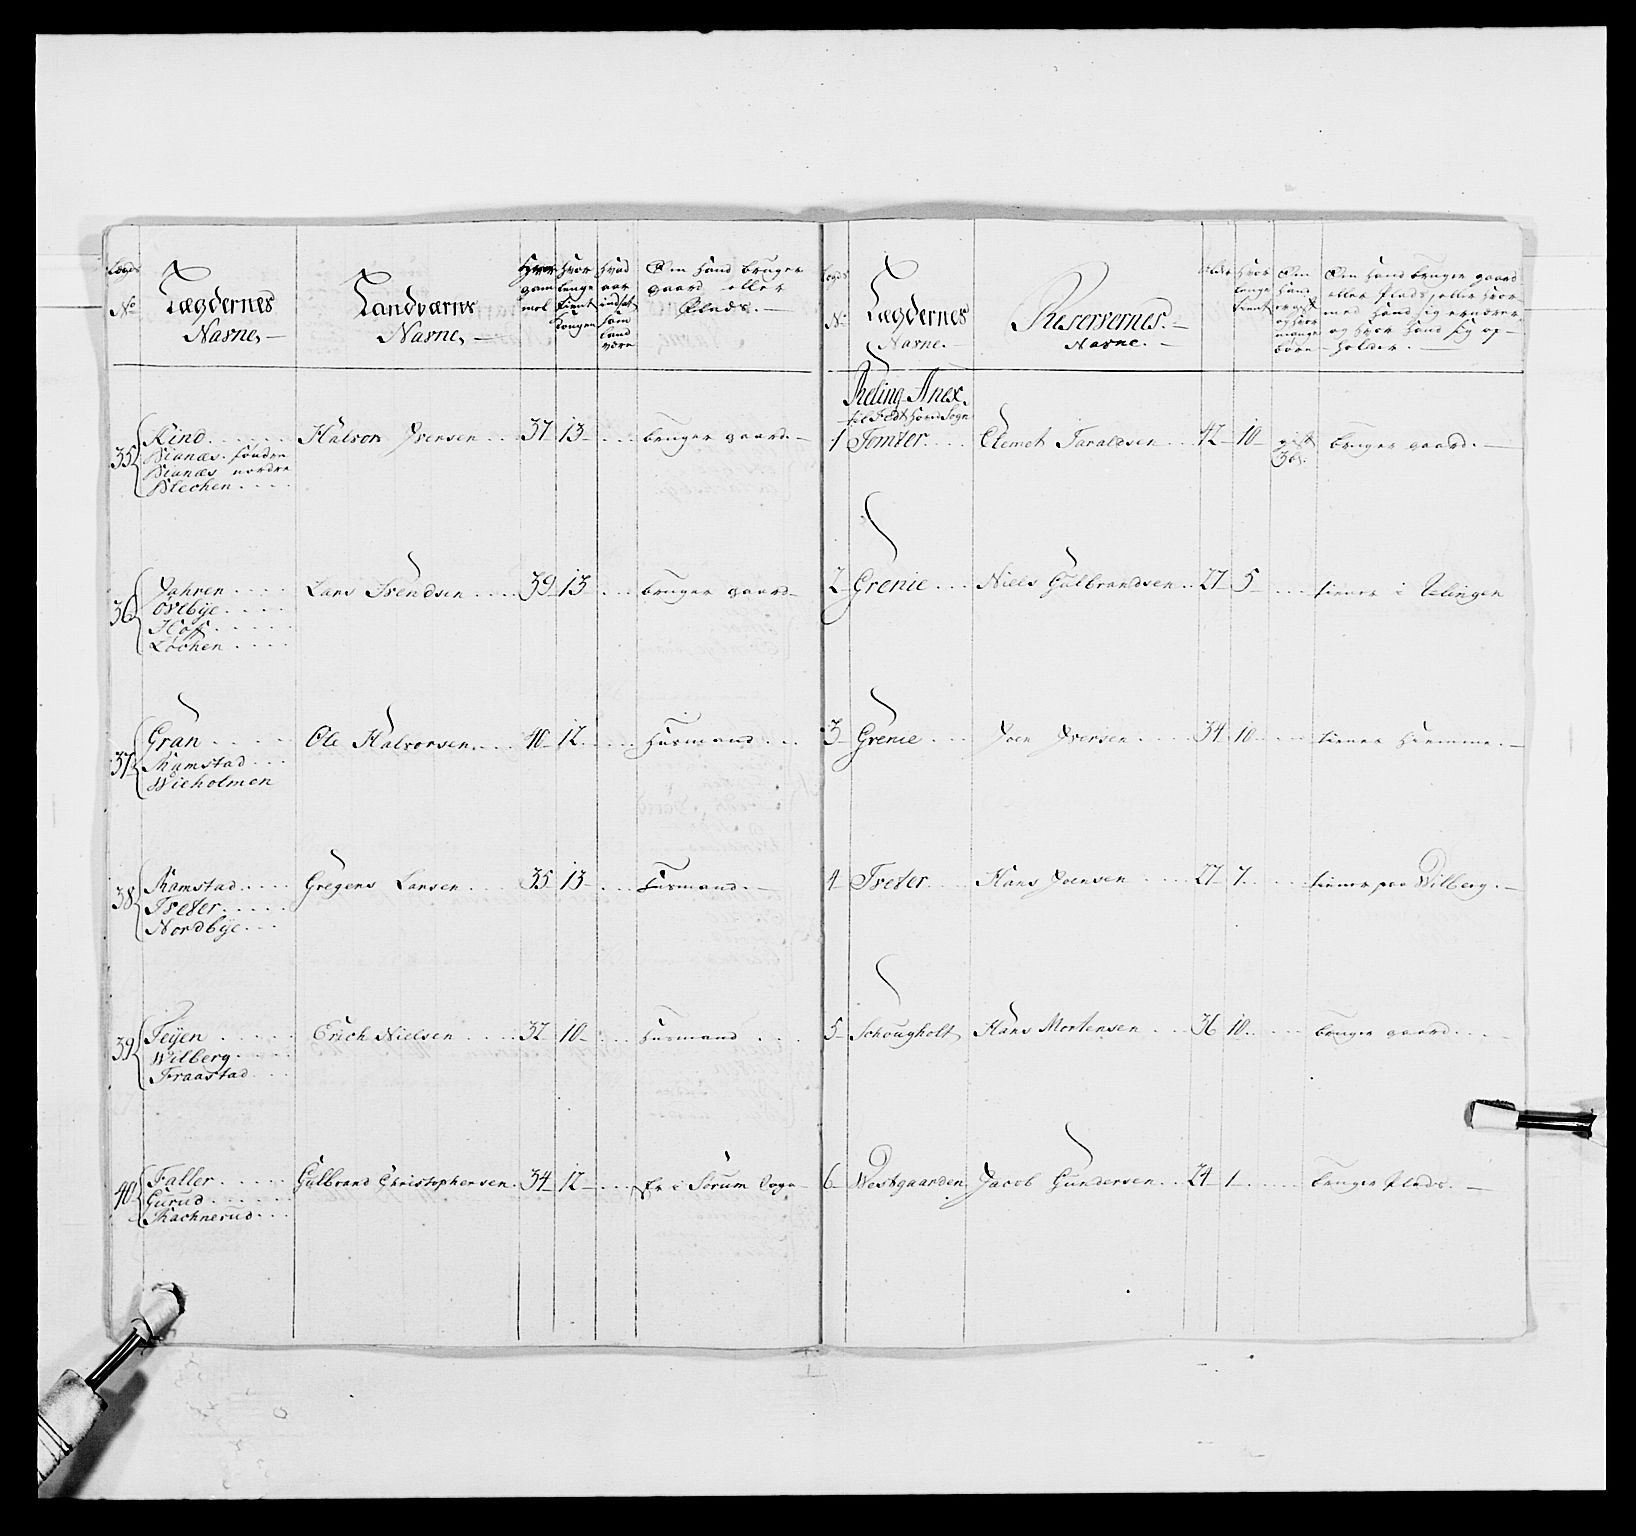 Lægds
No
Lægdernes
Navne,
Landværns
Navne,
Hvor
gam
mel
Hvor
lenge
tient
Kongen
Hvad
aar
indsat
som
land
være
Om hand bruger
gaard eller
Plads.
35 Kind
søndre
nordre
Halvor Iversen 37 13 bruger gaard
36
Ovlbye
Hoff
Løchen
Lars Svendsen 39 13 bruger gaard
37 Gran
Ramstad
Wieholmen
Ole Halvorsen 40 12 Husmand
38 Ramstad
Tveter
Nordbye
Gregers Larsen 35 13 Husmand
39 Feyen
Wilberg
Fraastad
Erich Nielsen 32 10 Husmand
40 Faller
Gurud
Rachnerud
Gulbrand Christophersen 34 12 Er i Sørum Sogn
Lægds
No
Lægdernes
Navne.
Reservernes.
Navne.
Alder
Hvor
lenge
tient
Om
hand
er gift
og hvor
mange
børn
Om hand bruger gaard
eller Plads, eller hvor
med hand sig ernærer
og hvor hand sig op-
holder.
Reling Anex.
til Fedt Sogn
1 Tomter Clemet Taraldsen 42 10 gift
3 b. bruger gaard.
2 Grenie Niels Gulbrandsen 27 5 tiener i Relingen
3 Grenie Joen Iversen 34 10 tiener hiemme.
4 Tveter Hans Joensen 27 7 tiener paa Wilberg.
5 Schougholt Hans Mortensen 36 10 bruger gaard
6 Westgaarden Jacob Gundersen 24 1 bruger Plads.